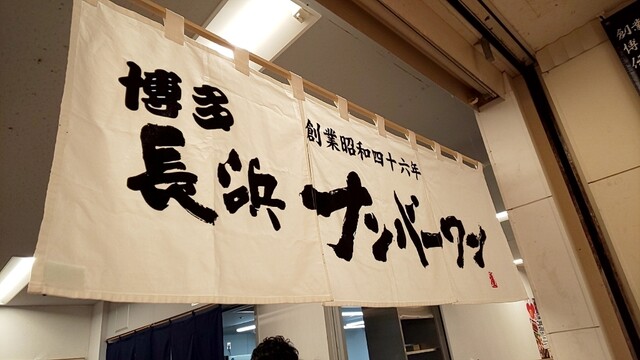 博多
長浜
創業昭和四十六年
ナンバーワン
創業
博